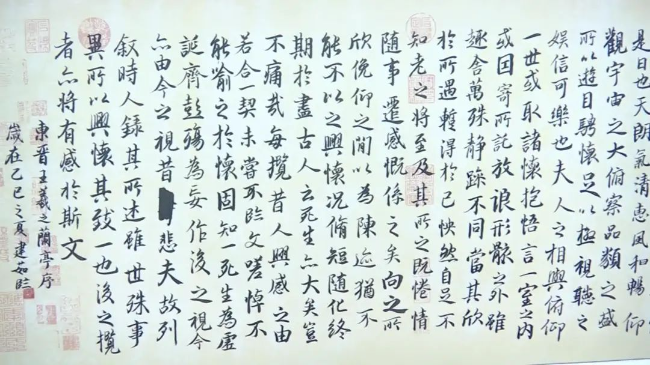 是日也天朗氣清惠風和暢仰
觀宇宙之大俯察品類之盛
所以遊目騁懷足以極視聽之
娛信可樂也夫人之相與俯仰
一世或取諸懷抱悟言一室之內
或因寄所託放浪形骸之外雖
趣舍萬殊靜躁不同當其欣
於所遇蹔得於己怏然自足不
知老之將至及其所之既惓情
隨事遷感慨係之矣向之所
欣俛仰之間以為陳迹猶不
能不以之興懷況脩短隨化終
期於盡古人云死生亦大矣豈
不痛哉每攬昔人興感之由
若合一契未嘗不臨文嗟悼不
能喻之於懷固知一死生為虛
誕齊彭殤為妄作後之視今
亦由今之視昔悲夫故列
敘時人錄其所述雖世殊事
異所以興懷其致一也後之攬
者亦將有感於斯文
東晉王羲之蘭亭序
歲在乙巳之夏建如臨